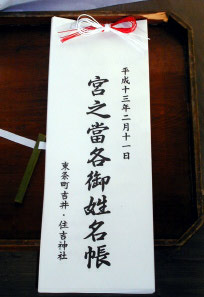 平成十三年二月十一日
宮之當各御姓名帳
東条町吉井・住吉神社